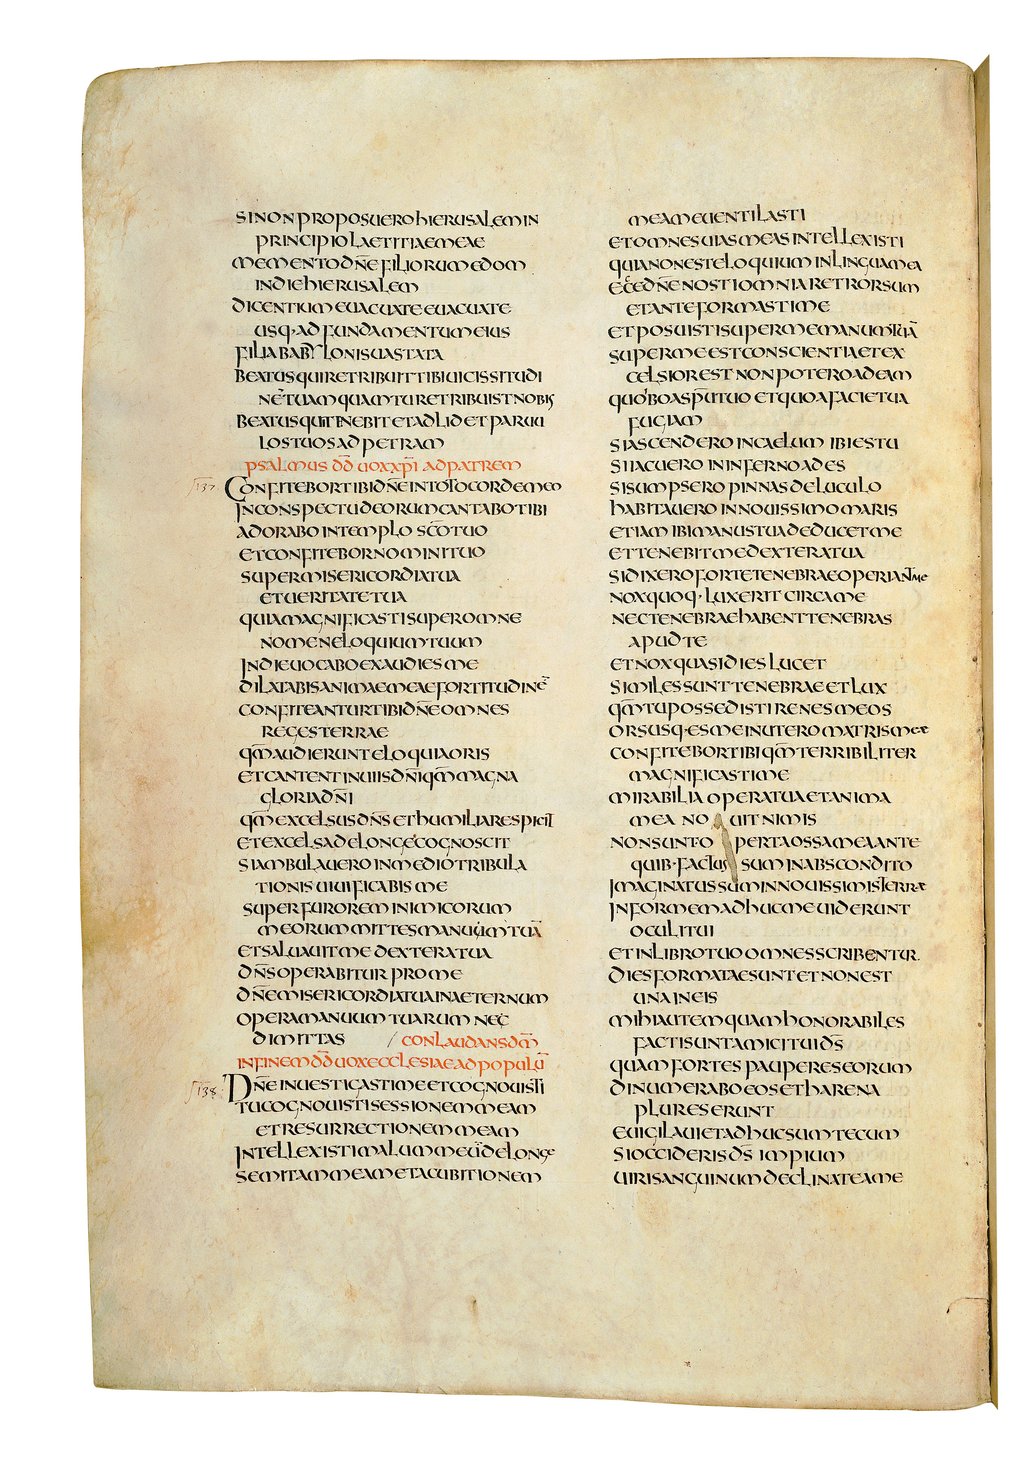 SINONPROPOSUEROHIERUSALEMIN
PRINCIPIOLAETITIAEMEAE
MEMENTODN̄EFILIORUMEDOM
INDIEHIERUSALEM
DICENTIUMEUACUATEEUACUATE
USQ·ADFUNDAMENTUMEIUS
FILIABABYLONISUASTATA
BEATUSQUIRETRIBUITTIBIUICISSITUDI
NĒTUAMQUAMTURETRIBUISTINOBIS
BEATUSQUITENEBITETADLIDETPARUU
LOSTUOSADPETRAM
PSALMUS DD UOXXPI ADPATREM
137·
CONFITEBORTIBIDN̄EINTOTOCORDEMEO
INCONSPECTUDEORUMCANTABOTIBI
ADORABOINTEMPLO SC̄OTUO
ETCONFITEBORNOMINITUO
SUPERMISERICORDIATUA
ETUERITATETUA
QUIAMAGNIFICASTISUPEROMNE
NOMENELOQUIUMTUUM
INDIEUOCABOEXAUDIESME
DILATABISANIMAEMEAEFORTITUDINĒ
CONFITEANTURTIBIDN̄EOMNES
REGESTERRAE
QM̄AUDIERUNTELOQUIAORIS
ETCANTENTINUIISDN̄IQM̄MAGNA
GLORIADN̄I
QM̄EXCELSUSDN̄SETHUMILIARESPICIT
ETEXCELSADELONGECOGNOSCIT
SIAMBULAUEROINMEDIOTRIBULA
TIONISUIUIFICABISME
SUPERFUROREMINIMICORUM
MEORUMMITTESMANUUMTUĀ
ETSALUAUITMEDEXTERATUA
DN̄SOPERABITURPROME
DN̄EMISERICORDIATUAINAETERNUM
OPERAMANUUMTUARUMNEC
DIMITTAS / CONLAUDANSDM̄
INFINEMDDUOXECCLESIAEADPOPULŪ
138·
DN̄EINUESTIGASTIMEETCOGNOUISTI
TUCOGNOUISTISESSIONEMMEAM
ETRESURRECTIONEMMEAM
INTELLEXISTIMALUMMEŪDELONGE
SEMITAMMEAMETACUBITIONEM
MEAMEUENTILASTI
ETOMNESUIASMEASINTELLEXISTI
QUIANONESTELOQUIUMINLINGUAMEA
ECCEDN̄ENOSTIOMNIARETRORSUM
ETANTEFORMASTIME
ETPOSUISTISUPERMEMANUMTUĀ
SUPERMEESTCONSCIENTIAETEX
CELSIOREST NONPOTEROADEAM
QUOIBOASPŪTUO ETQUOAFACIETUA
FUGIAM
SIASCENDEROINCAELUM IBIESTU
SIIACUERO ININFERNOADES
SISUMPSEROPINNASDELUCULO
HABITAUEROINNOUISSIMOMARIS
ETIAMIBIMANUSTUADEDUCETME
ETTENEBITMEDEXTERATUA
SIDIXEROFORTETENEBRAEOPERIANTME
NOXQUOQ·LUXERITCIRCAME
NECTENEBRAEHABENTTENEBRAS
APUDTE
ETNOXQUASIDIESLUCET
SIMILESSUNTTENEBRAEETLUX
QM̄TUPOSSEDISTIRENESMEOS
ORSUSQ·ESMEINUTEROMATRISMEAE
CONFITEBORTIBIQM̄TERRIBILITER
MAGNIFICASTIME
MIRABILIAOPERATUAETANIMA
MEA NO UITNIMIS
NONSUNTO PERTAOSSAMEAANTE
QUIB·FACTUS SUMINABSCONDITO
IMAGINATUSSUMINNOUISSIMISTERRAE
INFORMEMADHUCMEUIDERUNT
OCULITUI
ETINLIBROTUOOMNESSCRIBENTUR
DIESFORMATAESUNTETNONEST
UNAINEIS
MIHIAUTEMQUAMHONORABILES
FACTISUNTAMICITUIDS̄
QUAMFORTESPAUPERESEORUM
DINUMERABOEOSETHARENA
PLURESERUNT
EUIGILAUIETADHUCSUMTECUM
SIOCCIDERISDS̄ IMPIUM
UIRISANGUINUMDECLINATEAME